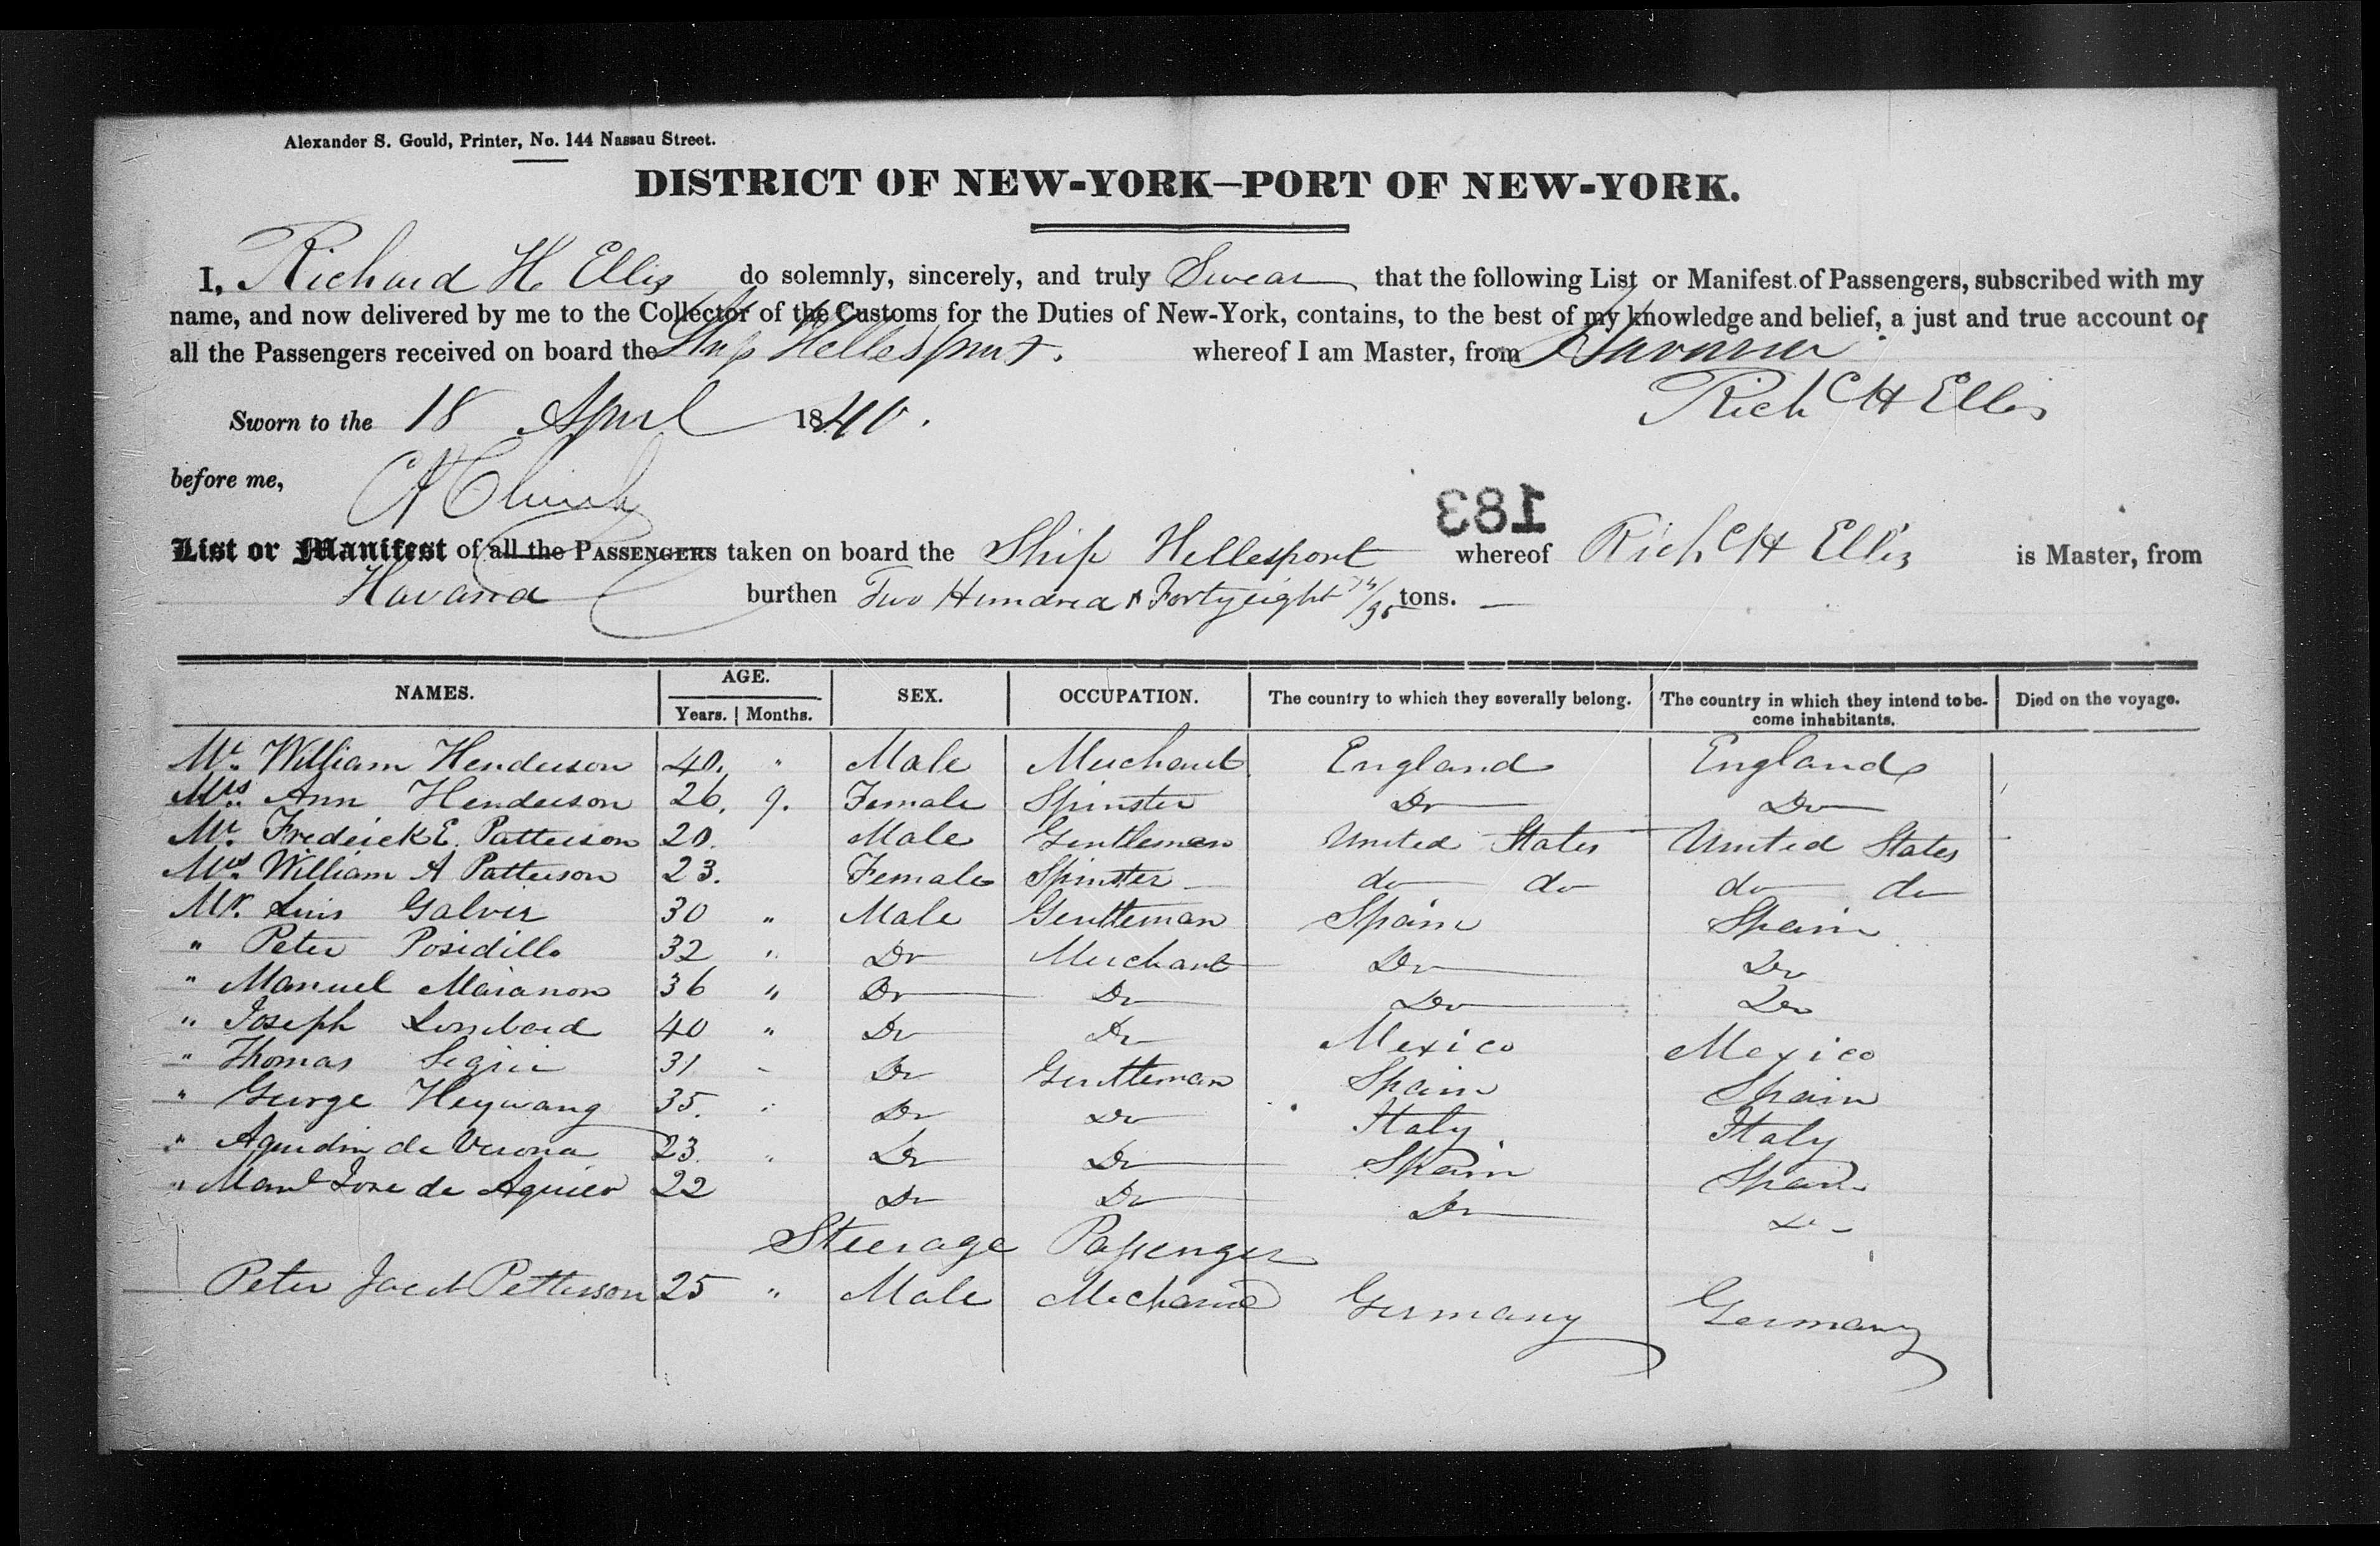 Alexander S. Gould, Printer, No. 144 Nassau Street.
DISTRICT OF NEW-YORK—PORT OF NEW-YORK.
I, Richard H. Ellis do solemnly, sincerely, and truly Swear that the following List or Manifest of Passengers, subscribed with my
name, and now delivered by me to the Collector of the Customs for the Duties of New-York, contains, to the best of my knowledge and belief, a just and true account of
all the Passengers received on board the Ship Hellespont. whereof I am Master, from Havana
Rich H Ellis
Sworn to the 18 April 1840.
before me,
183
List or Manifest of all the PASSENGERS taken on board the Ship Hellespont whereof Rich H Ellis is Master, from
Havana burthen Two Hundred & Forty eight /95 tons.
NAMES. AGE. SEX. OCCUPATION. The country to which they severally belong. The country in which they intend to be- Died on the voyage.
Years. Months. come inhabitants.
Mr. William Henderson 40. " Male Merchant England England
Mrs. Ann Henderson 26. 9. Female Spinster Do Do
Mr. Frederick E. Patterson 20. Male Gentleman United States United States
Mrs. William A Patterson 23. Female Spinster do do do do
Mr. Luis Galvir 30 " Male Gentleman Spain Spain
" Peter Posidillo 32 " Do Merchant Do Do
" Manuel Maranon 36 " Do Do Do Do
" Joseph Lombard 40 " Do Do Mexico Mexico
" Thomas 31 " Do Gentleman Spain Spain
" George Heywang 35. " Do Do Italy Italy
" de Verona 23. " Do Do Spain Spain
" Manl Jose de Aguiero 22 Do Do Do Do
Steerage Passenger
Peter Jacob Petterson 25 " Male Mechanic Germany Germany